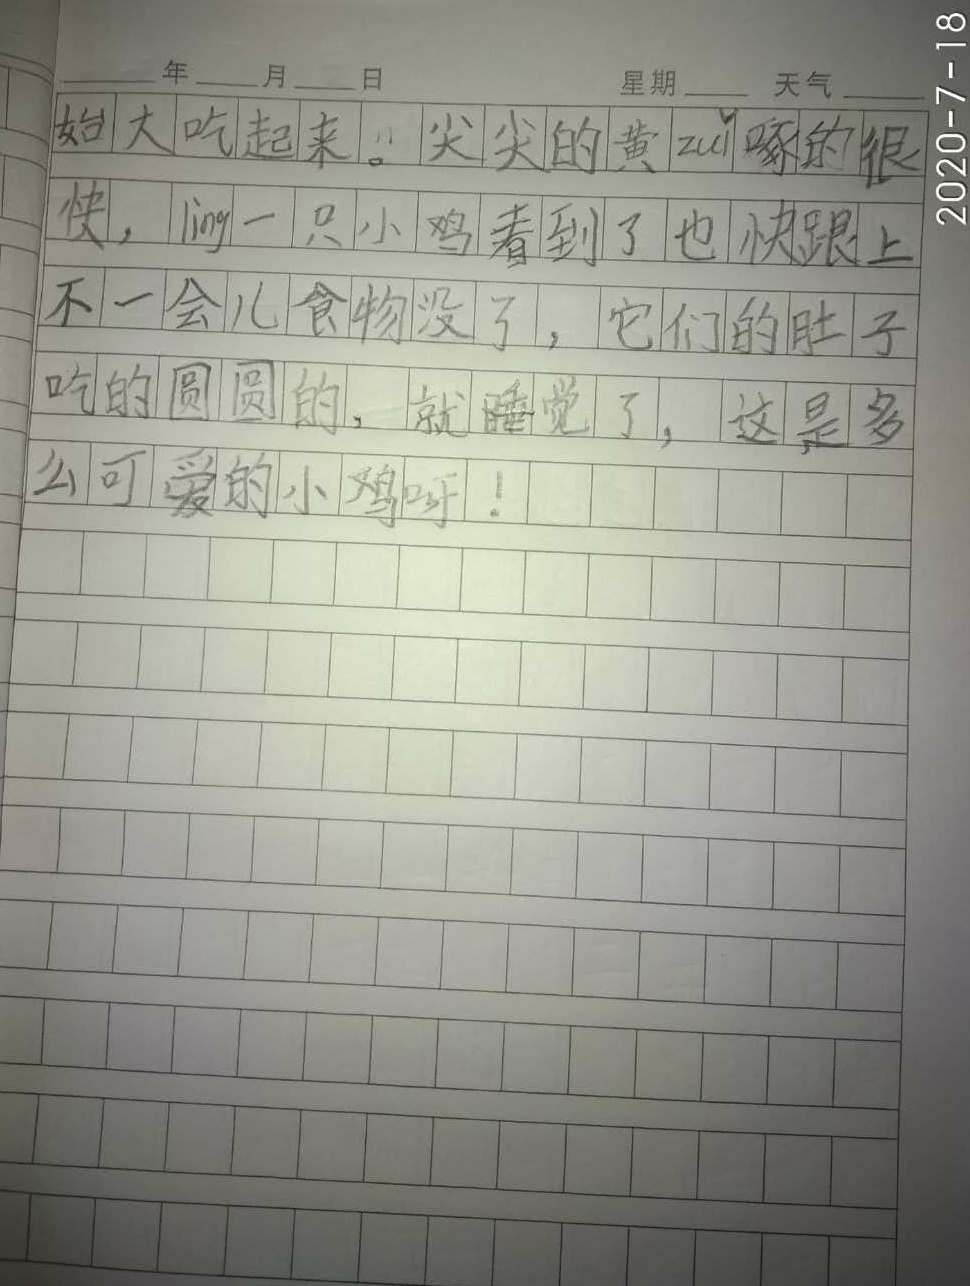 ____年____月____日 星期____ 天气____
始大吃起来。尖尖的黄zuǐ啄的很
快，ling一只小鸡看到了也快跟上
不一会儿食物没了，它们的肚子
吃的圆圆的，就睡觉了，这是多
么可爱的小鸡呀！
2020-7-18